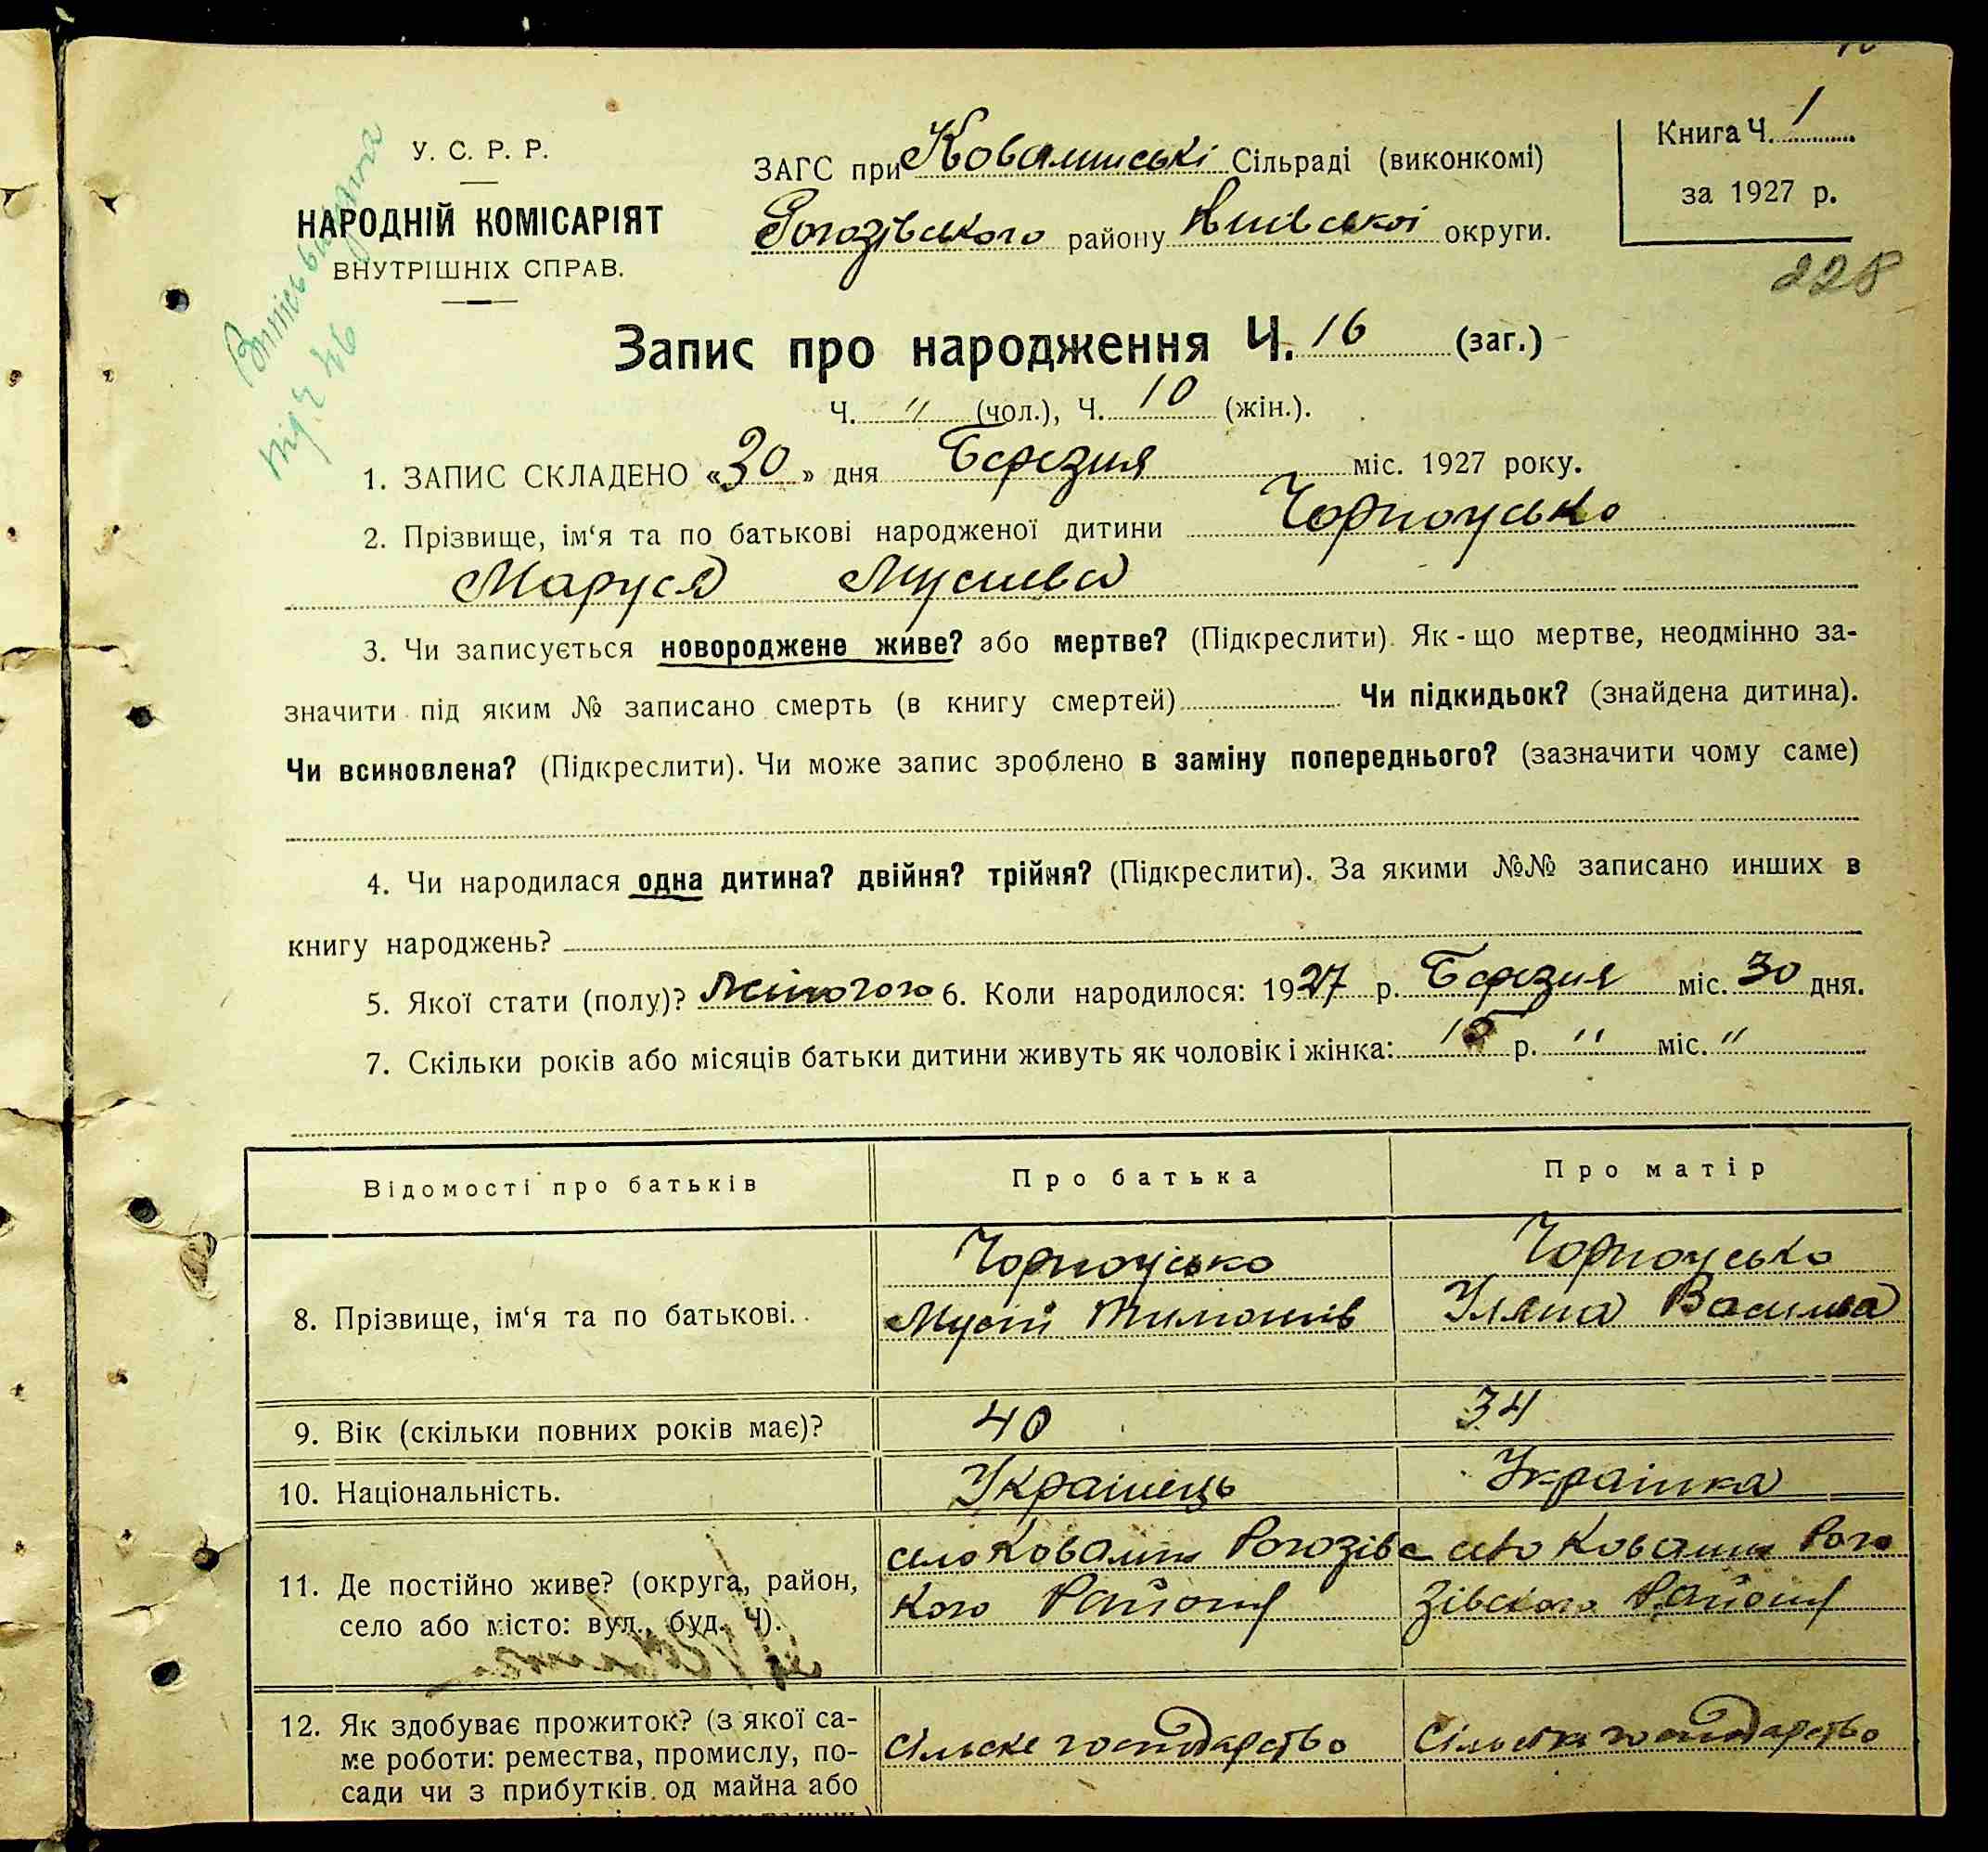 У. С. Р. Р.
НАРОДНІЙ КОМІСАРІЯТ
ВНУТРІШНІХ СПРАВ.
ЗАГС при Ковалинські Сільраді (виконкомі)
Рогозівського району Київської округи.
Книга Ч. 1
за 1927 р.
228
Запис про народження Ч. 16 (заг.)
Ч. " (чол.), Ч. 10 (жін.).
1. ЗАПИС СКЛАДЕНО «30» дня Березня міс. 1927 року.
2. Прізвище, ім‘я та по батькові народженої дитини Чорноусько
Маруся Мусиева
3. Чи записується новороджене живе? або мертве? (Підкреслити). Як-що мертве, неодмінно за-
значити під яким № записано смерть (в книгу смертей) Чи підкидьок? (знайдена дитина).
Чи всиновлена? (Підкреслити). Чи може запис зроблено в заміну попереднього? (зазначити чому саме)
4. Чи народилася одна дитина? двійня? трійня? (Підкреслити). За якими №№ записано инших в
книгу народжень?
5. Якої стати (полу)? 6. Коли народилося: 1927 р. Березня міс. 30 дня.
7. Скільки років або місяців батьки дитини живуть як чоловік і жінка: 15 р. " міс. "
Відомості про батьків Про батька Про матір
Чорноусько Чорноусько
8. Прізвище, ім‘я та по батькові. Мусій Тимошів Уляна Василева
9. Вік (скільки повних років має)? 40 34
10. Національність. Украінець Украінка
село Ковалин Рогозівс село Ковалин Рого
11. Де постійно живе? (округа, район, кого Району зівского Району
село або місто: вул., буд. Ч).
12. Як здобуває прожиток? (з якої са-
ме роботи: ремества, промислу, по- Сільске господарство Сільське господарство
сади чи з прибутків од майна або